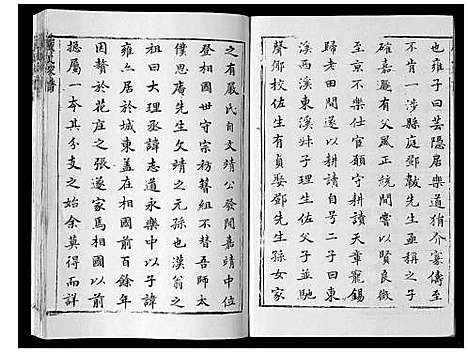 也雍子曰芸隱居樂道狷介寡儔至
不肯一涉縣庭鄧韍先生亟稱之子
確嘉應有父風正統間嘗以賢良徵
至京不樂仕官願守耕讀天章寵錫
歸老田間遂以耕讀自號二子曰東
溪西溪東季理生佐父子並馳
聲鄉校先生有貞娶鄧先生孫女家
之有嚴氏自文靖公發聞嘉靖中位
登相國世守宗祊簪組不替吾師太
僕思庵先生文靖之元孫也漢翁之
祖曰大理丞諱志道永樂中以子諱
雍亦居於城東蓋在相國前百餘年
贅於花庄之張遂家焉相國前
攄屬一本其分支之始余莫得而詳
嚴氏家譜